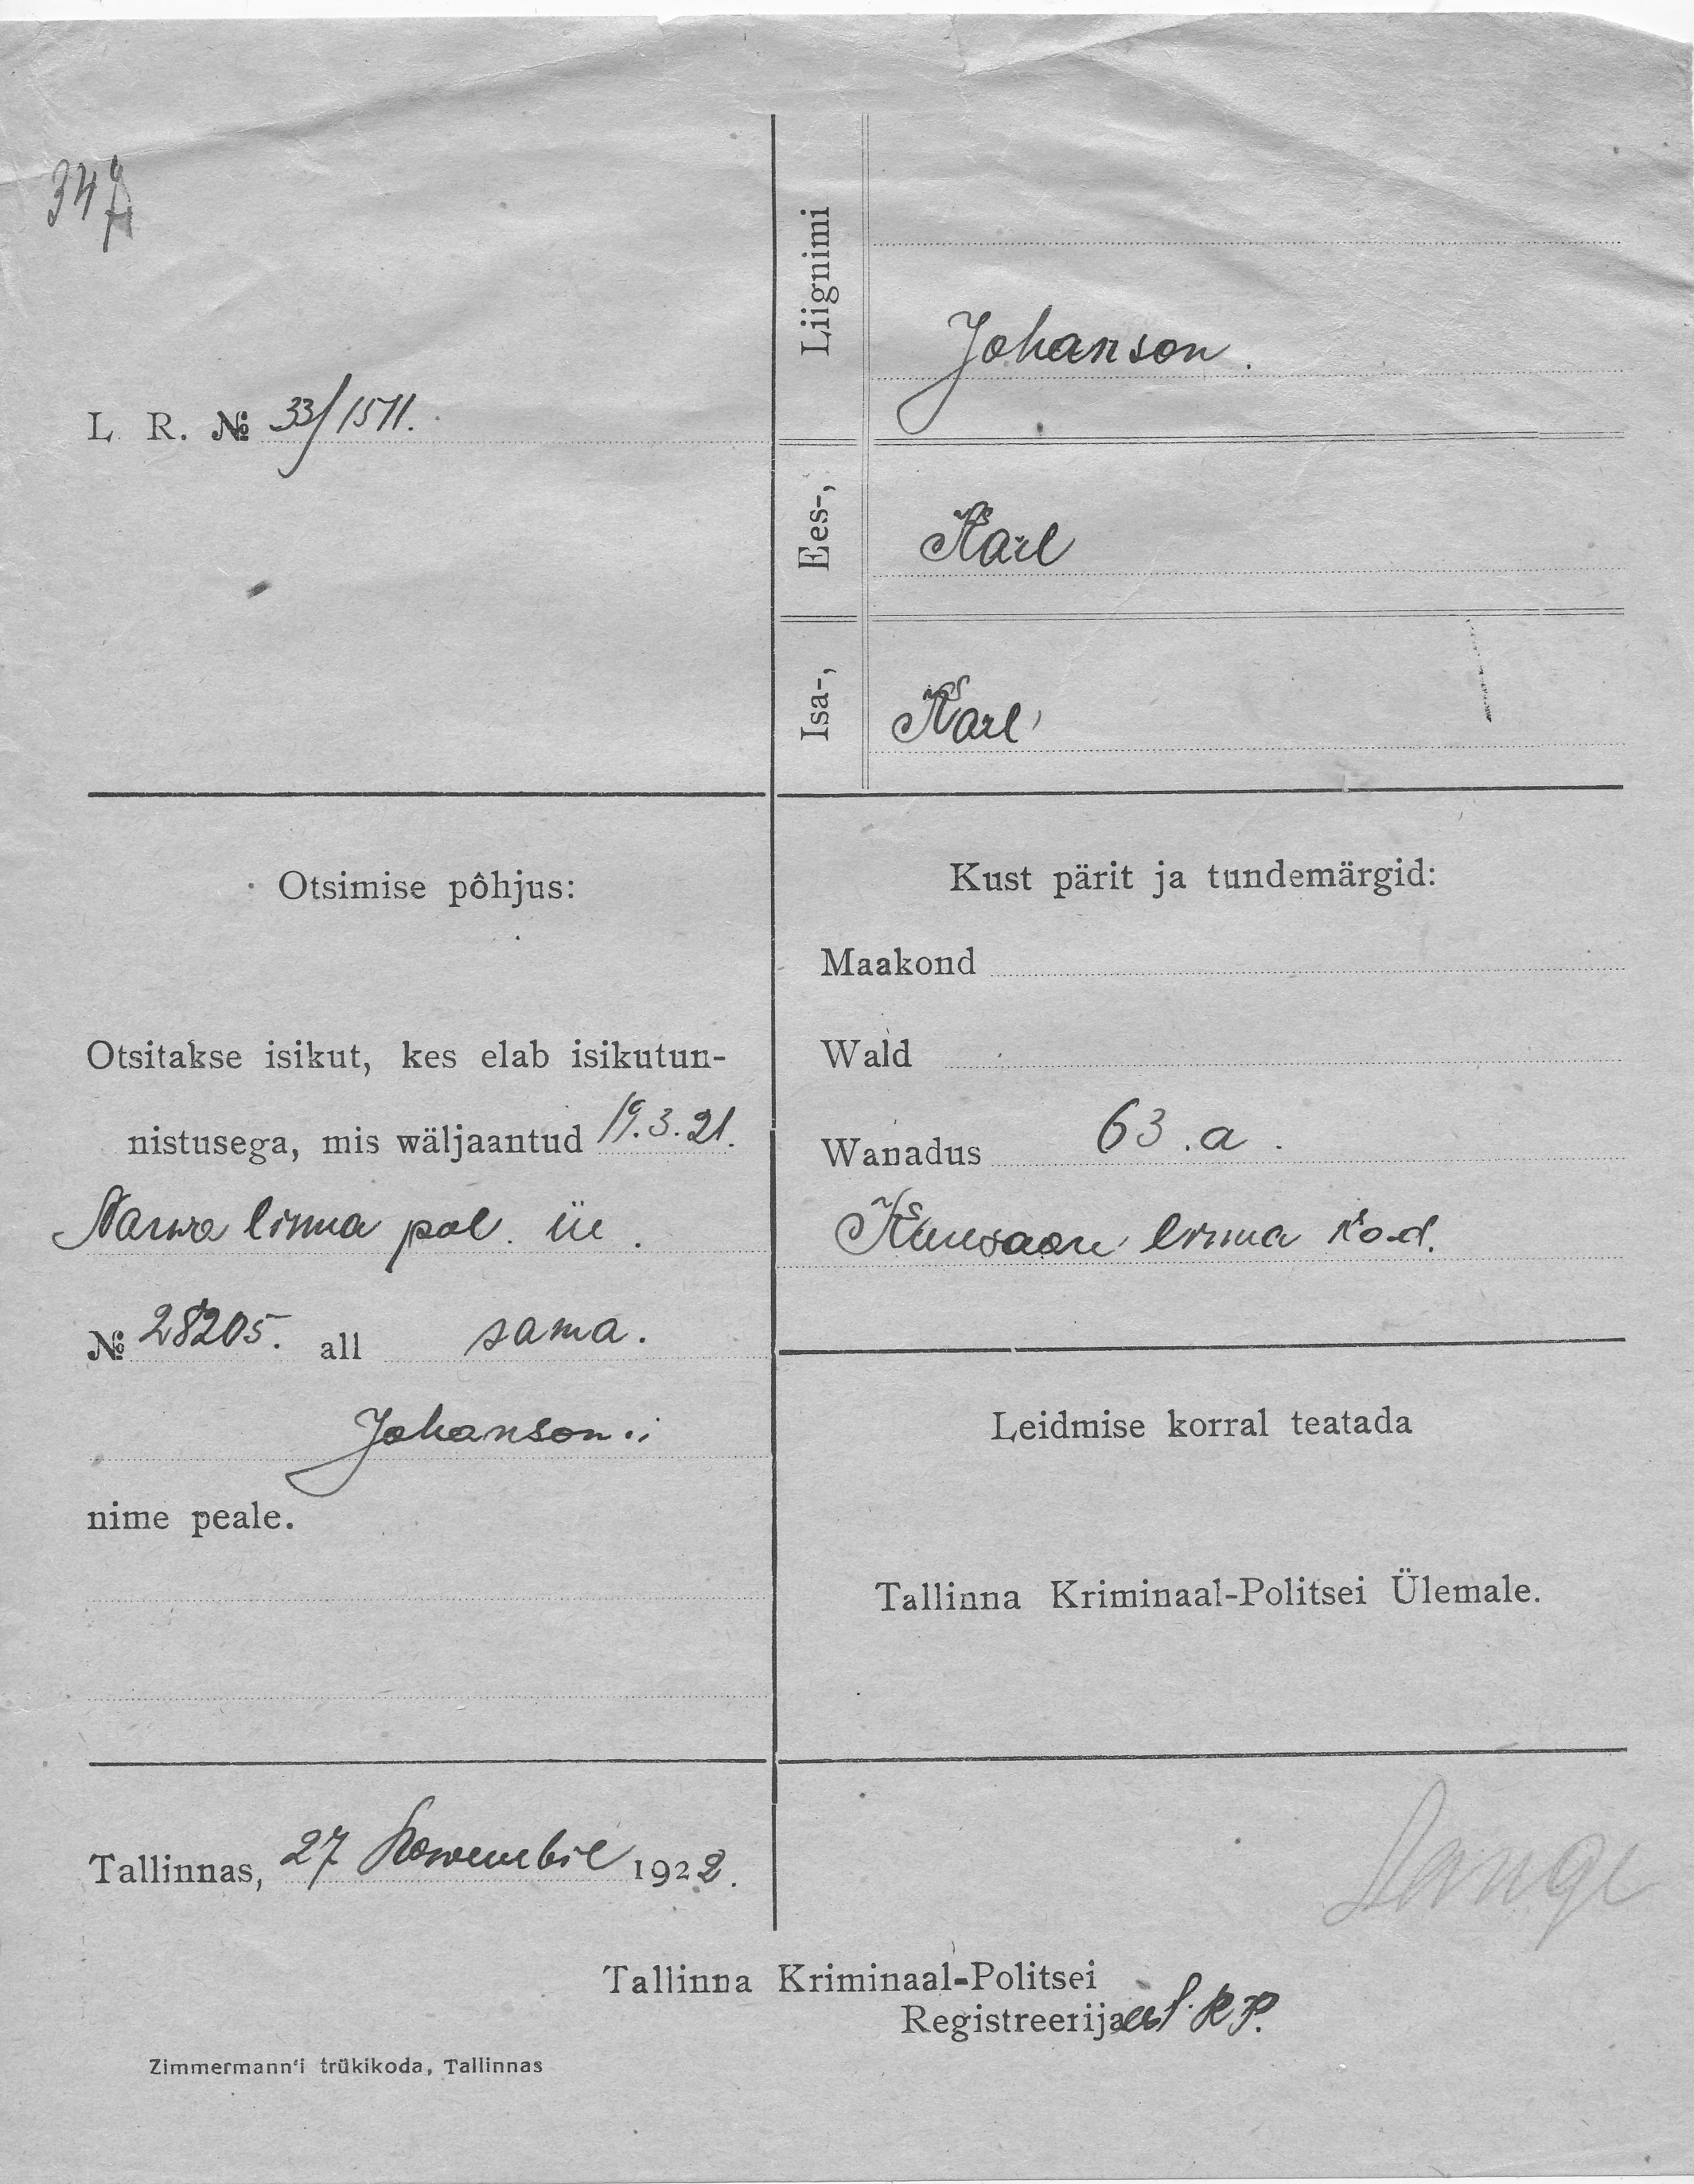 347
L. R. № 33/1511.
Liignimi
Johanson.
Ees-,
Karl
Isa-,
Karl
Otsimise pôhjus:
Otsitakse isikut, kes elab isikutun-
nistusega, mis wäljaantud 19.3.21.
Narwa linna pol. ü.
№ 28205. all sama.
Johanson.i
nime peale.
Kust pärit ja tundemärgid:
Maakond
Wald
Wanadus 63. a.
Kuresaare linna kod.
Leidmise korral teatada
Tallinna Kriminaal-Politsei Ülemale.
Tallinnas, 27 Nowembril 1922.
Lange
Tallinna Kriminaal-Politsei
Registreerija
Zimmermann'i trükikoda, Tallinnas